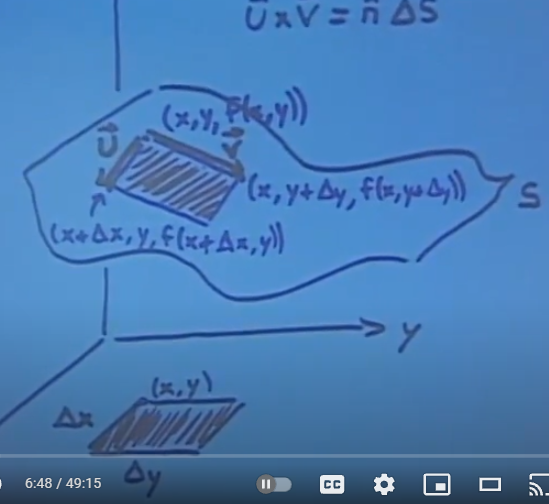 U⃗ x V⃗ = n̂ ΔS
(x, y, f(x, y))
U⃗
V⃗
(x, y+Δy, f(x, y+Δy))
S
(x+Δx, y, f(x+Δx, y))
y
(x, y)
Δx
Δy
6:48 / 49:15
CC